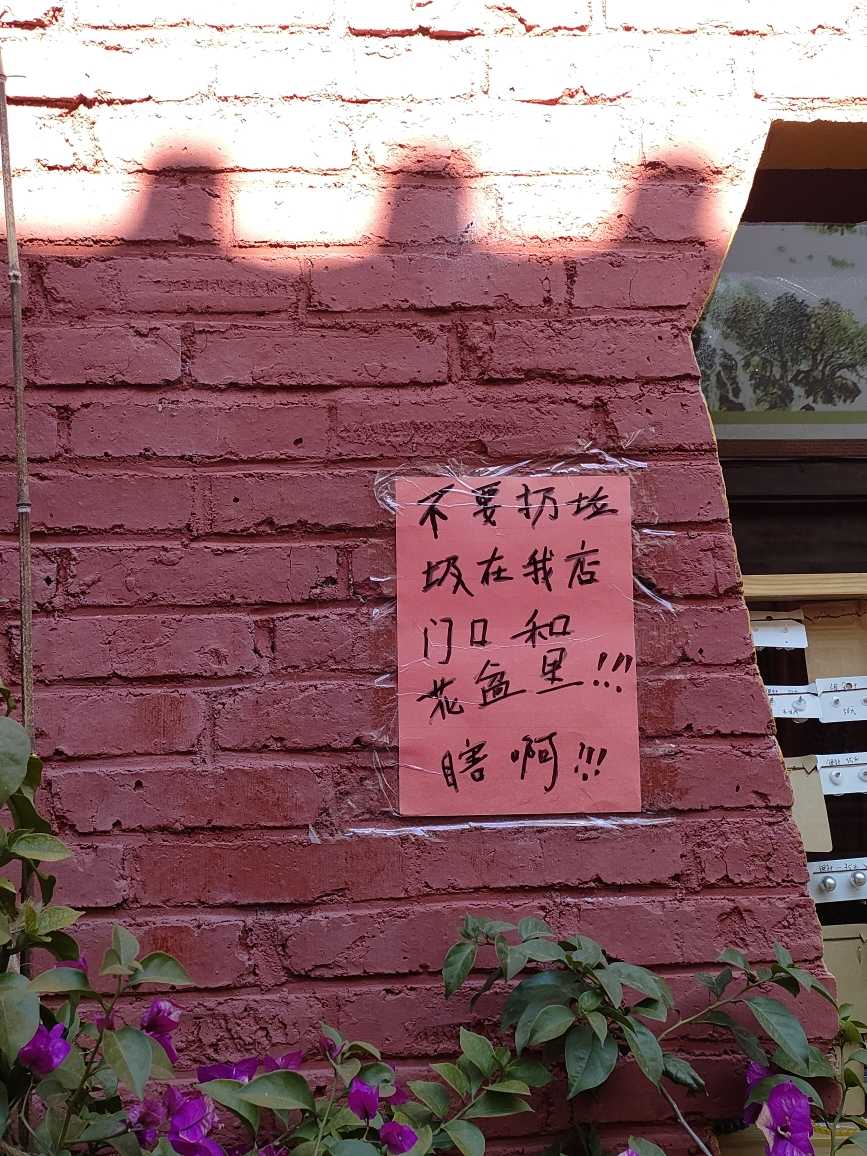 不要扔垃
圾在我店
门口和
花盆里!!!
瞎啊!!!